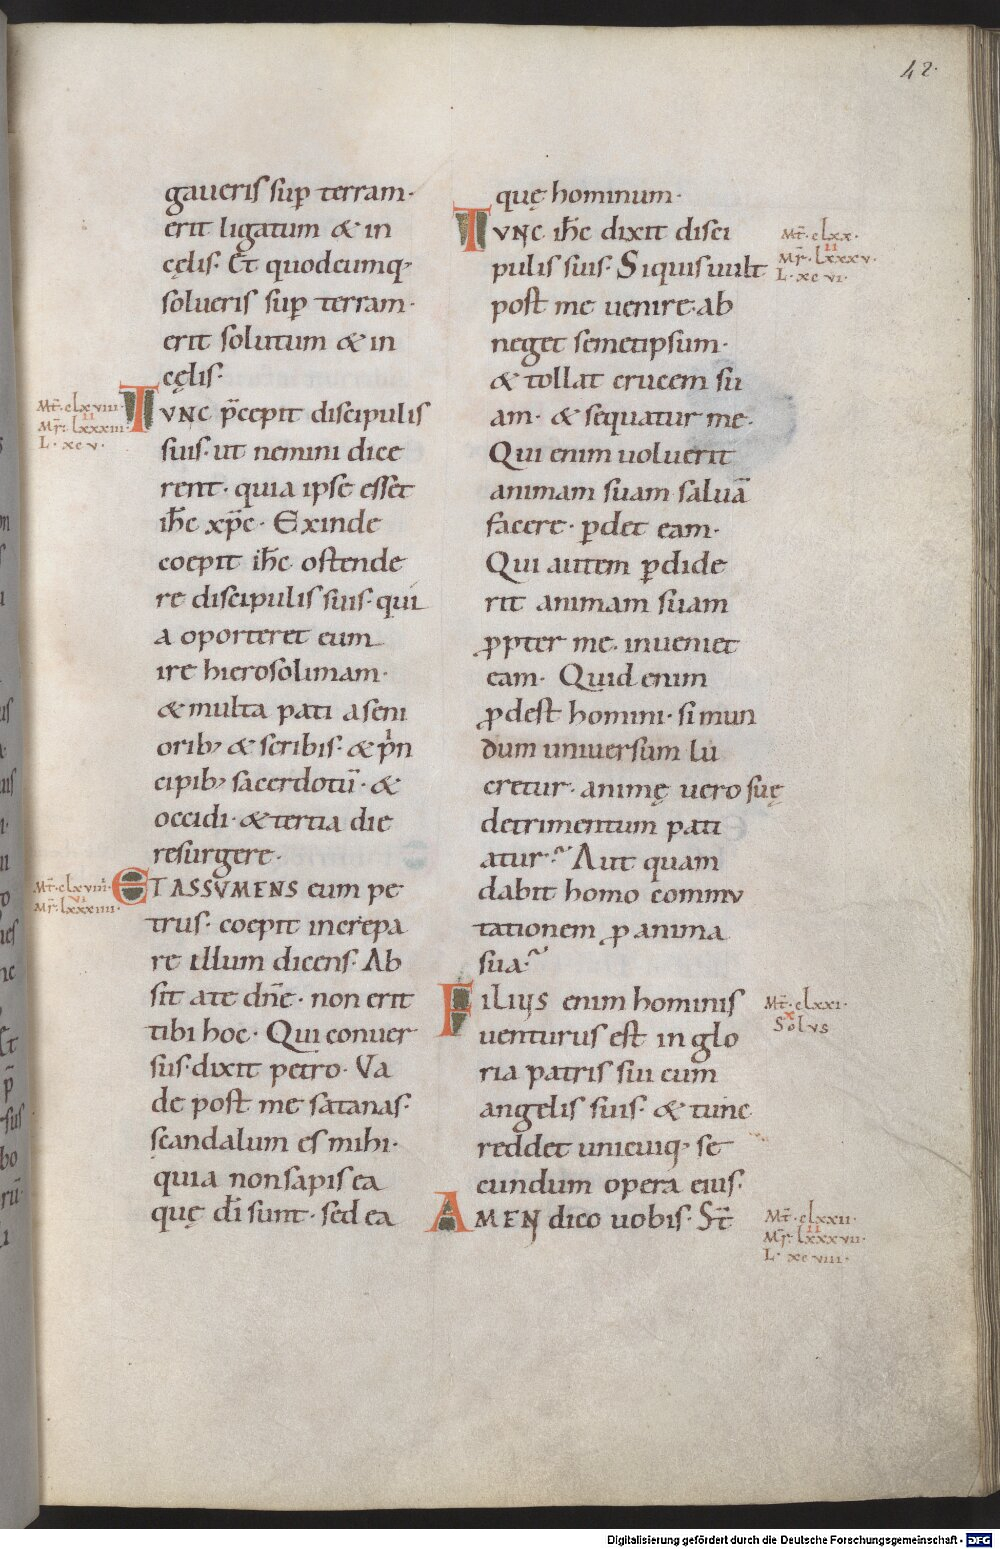 42.
gaueris sup̄ terram·
erit ligatum & in
cęlis· Et quodcumq;
solueris sup̄ terram·
erit solutum & in
cęlis·
Mt̄·clxviii·
ii
Mr̄·lxxxiii·
L·xcv·
TVNC p̄cepit discipulis
suis· ut nemini dice
rent· quia ipse esset
ih̄c xp̄c· Exinde
coepit ih̄c ostende
re discipulis suis· qui
a oporteret eum
ire hierosolimam·
& multa pati a seni
orib; & scribis· & prin
cipib; sacerdotū· &
occidi· & tertia die
resurgere·
Mt̄·clxviiii·
vi
Mr̄·lxxxiiii·
ET ASSVMENS eum pe
trus· coepit increpa
re illum dicens· Ab
sit a te dn̄e· non erit
tibi hoc· Qui conuer
sus· dixit petro· Va
de post me satanas·
scandalum es mihi·
quia non sapis ea
quę dī sunt· sed ea
quę hominum·
TVNC ih̄c dixit disci
pulis suis· Si quis uult
post me uenire· ab
neget semetipsum·
& tollat crucem su
am· & sequatur me·
Qui enim uoluerit
animam suam saluā
facere· ꝑdet eam·
Qui autem ꝑdide
rit animam suam
ꝓpter me· inueniet
eam· Quid enim
ꝓdest homini· si mun
dum uniuersum lu
cretur· animę uero suę
detrimentum pati
atur? Aut quam
dabit homo commu
tationem ꝓ anima
sua?
Mt̄·clxx·
ii
Mr̄·lxxxv·
L·xcvi·
FILIUS enim hominis
uenturus est in glo
ria patris sui cum
angelis suis· & tunc
reddet unicuiq; se
cundum opera eius·
Mt̄·clxxi·
x
Solus
AMEN dico uobis· St̄
Mt̄·clxxii·
ii
Mr̄·lxxxvii·
L·xcviii·
Digitalisierung gefördert durch die Deutsche Forschungsgemeinschaft - DFG